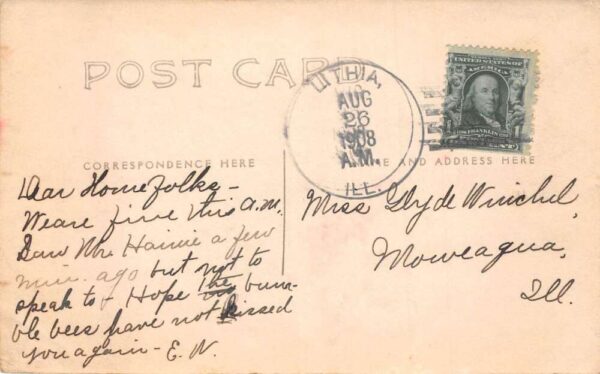 POST CARD
LITHIA,
AUG
26
1908
A.M.
ILL.
UNITED STATES OF
AMERICA
FRANKLIN
1
CORRESPONDENCE HERE
NAME AND ADDRESS HERE
Dear Homefolks -
We are fine this a.m.
Saw Mr. Hainie a few
min. ago but not to
speak to - Hope the bum-
ble bees have not kissed
you again - E. W.
Miss Clyde Winchel,
Moweaqua,
Ill.